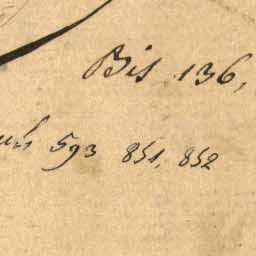 Bis 136,
593 851, 852